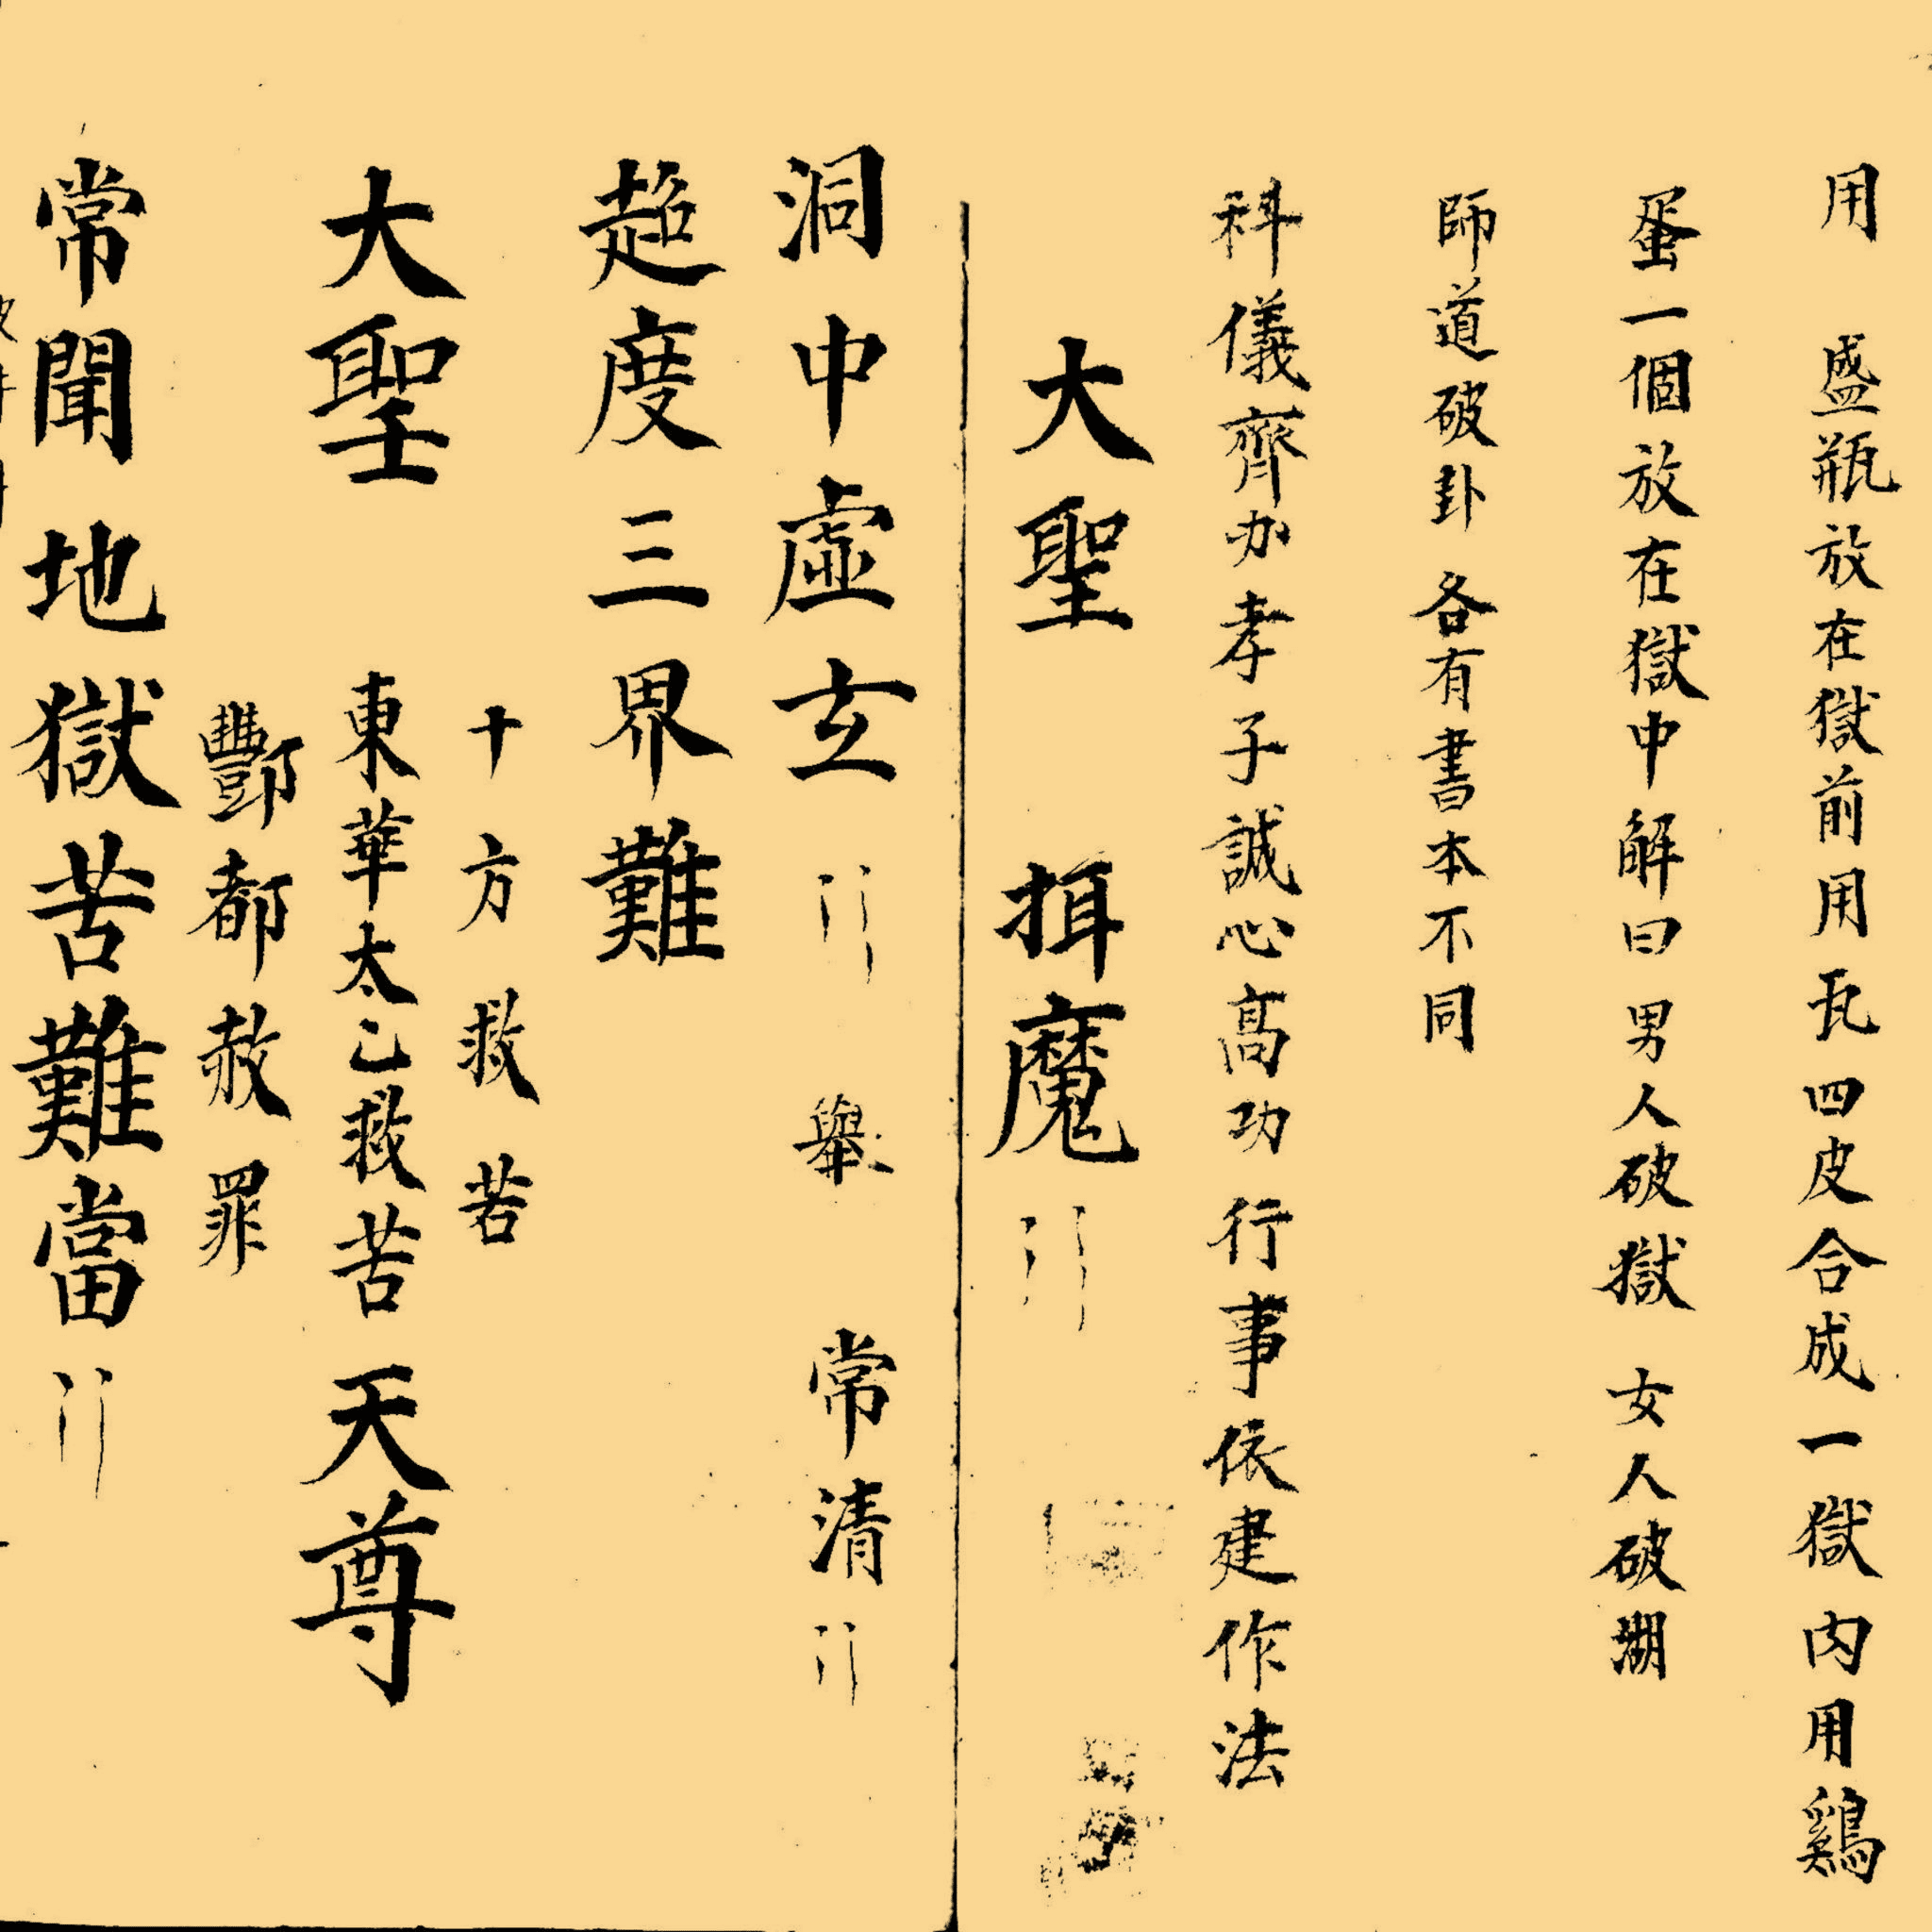 用 盛瓶放在獄前用瓦四皮合成一獄内用鷄
蛋一個放在獄中解曰男人破獄 女人破湖
師道破卦 各有書本不同
科儀齊办孝子誠心高功行事依建作法
大聖 揖魔
洞中虛玄 舉 常清
超度三界難
十方救苦
大聖 東華太乙救苦 天尊
酆都赦罪
常聞地獄苦難當